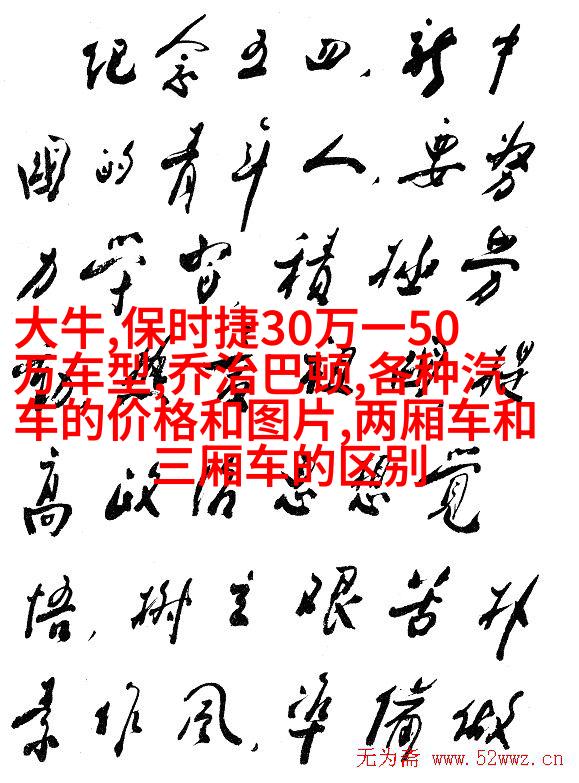 纪念五四,新中
國的青年人,要努
力学習,積極劳
大牛,保时捷30万一50
万车型,乔治巴顿,各种汽
動 提
车的价格和图片,两厢车和
三厢车的区别
高政治思想覺
悟,樹立艰苦朴
素作风,準備做
无为斋 www.52wwz.cn